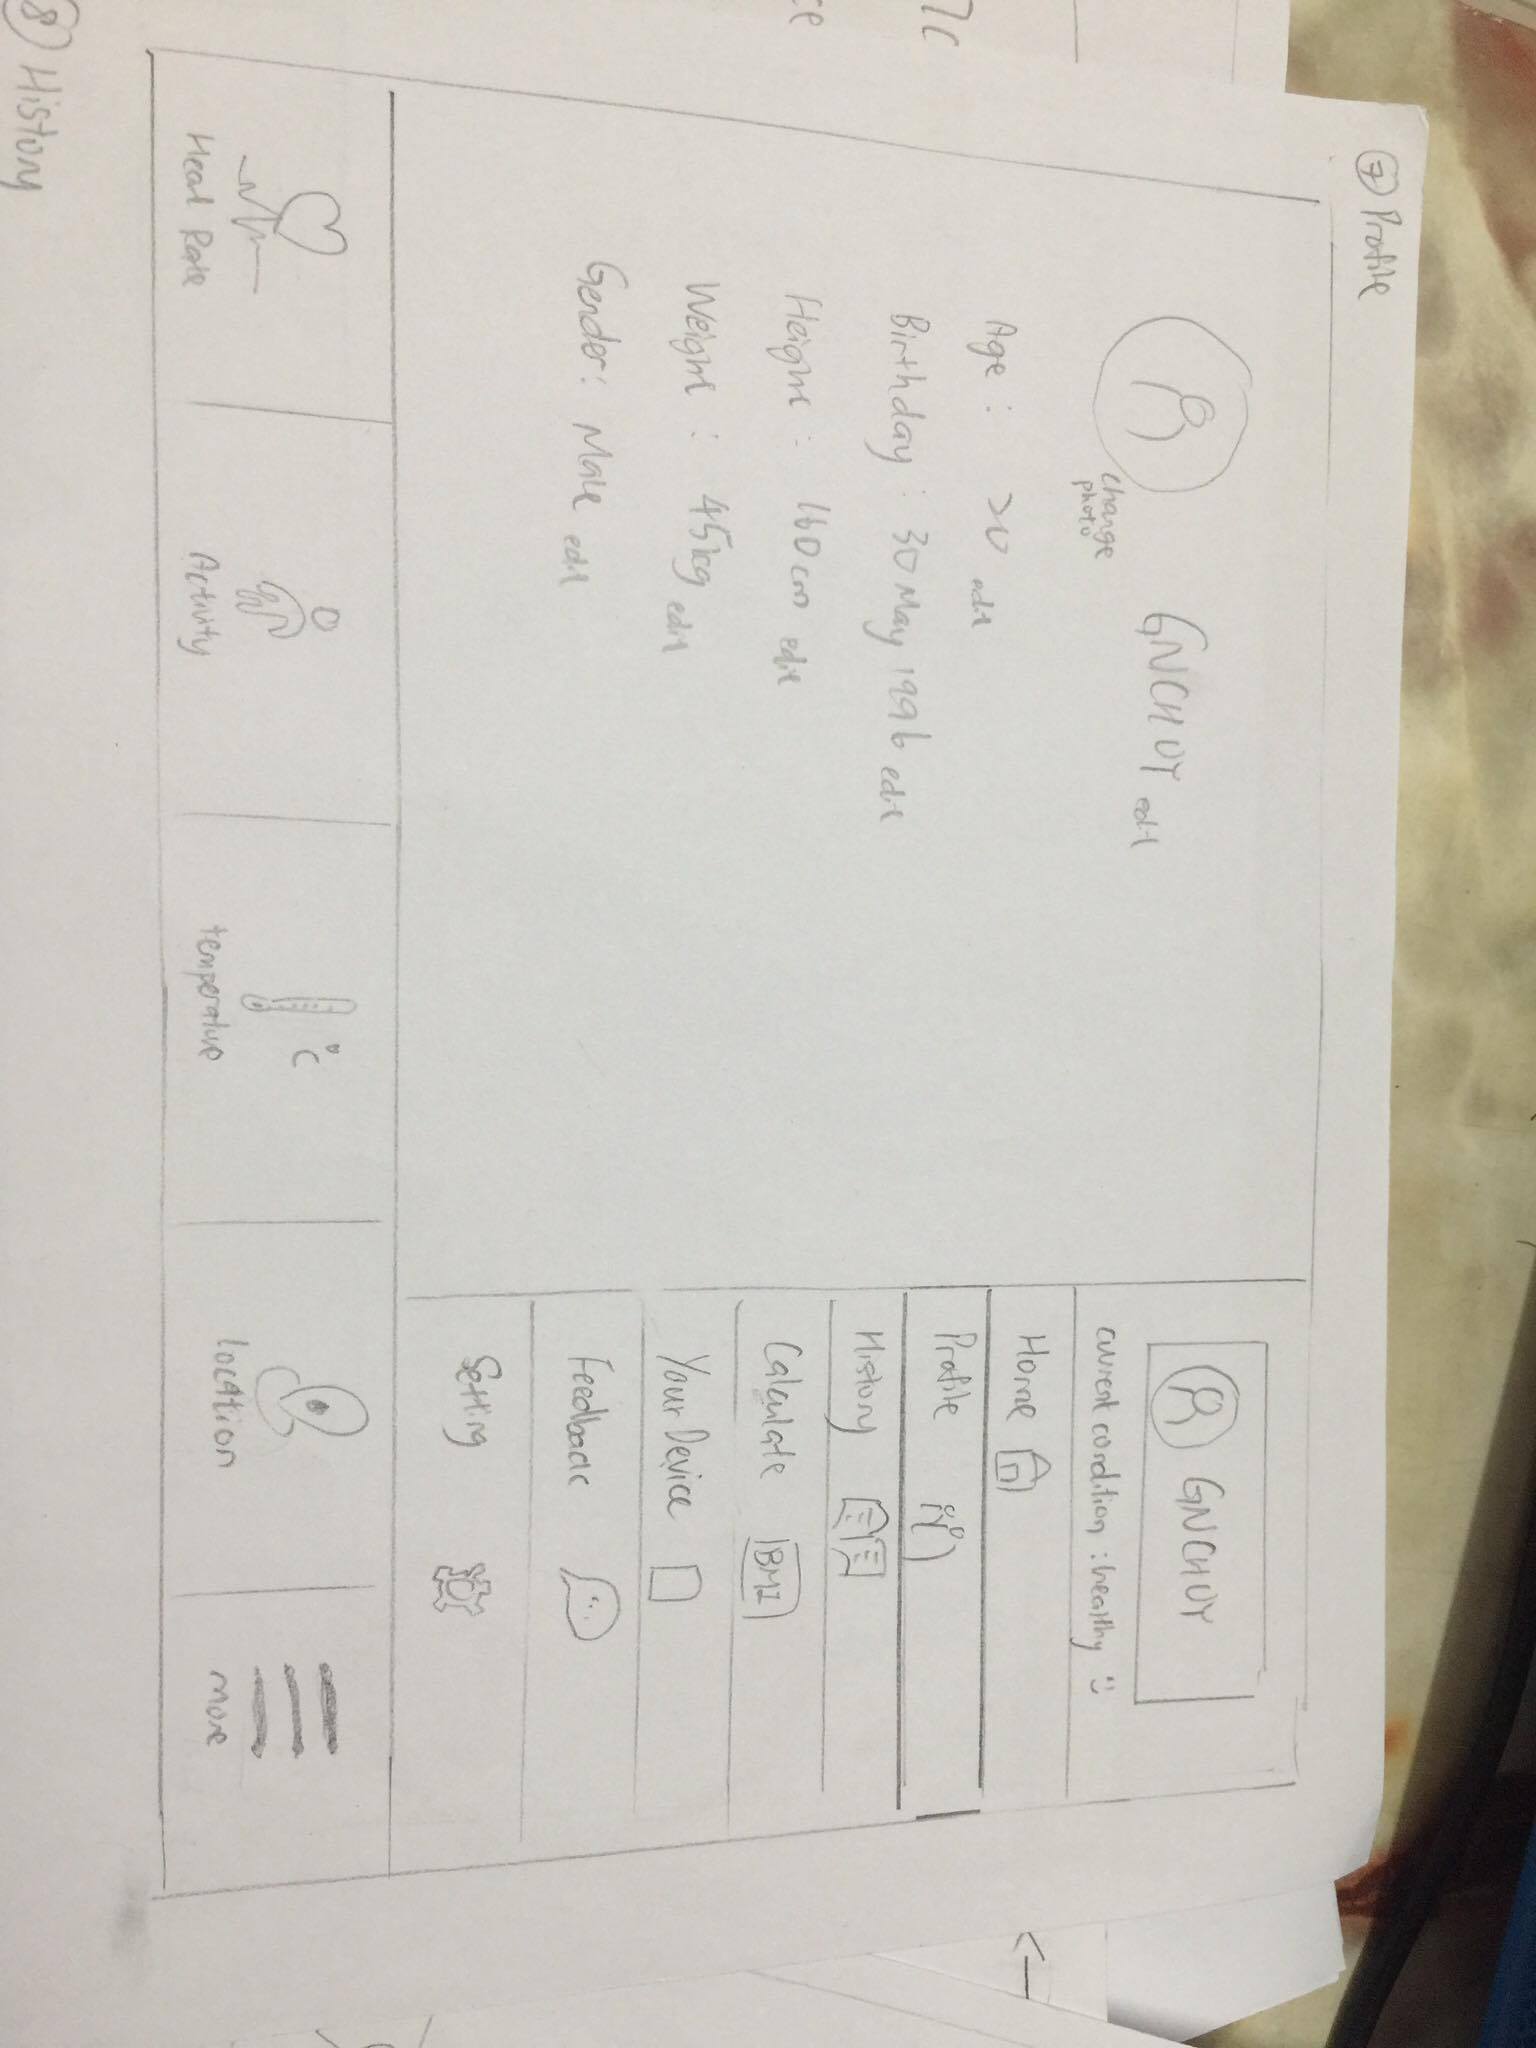 ⑦ Profile
GNCHUY edit
change
photo
Age : 20 edit
Birthday : 30 May 1996 edit
Height : 160cm edit
Weight : 45kg edit
Gender : Male edit
GNCHUY
current condition : healthy :)
Home
Profile
History
Calculate BMI
Your Device
Feedback
Setting
Heart Rate
Activity
temperature
°C
location
more
⑧ History